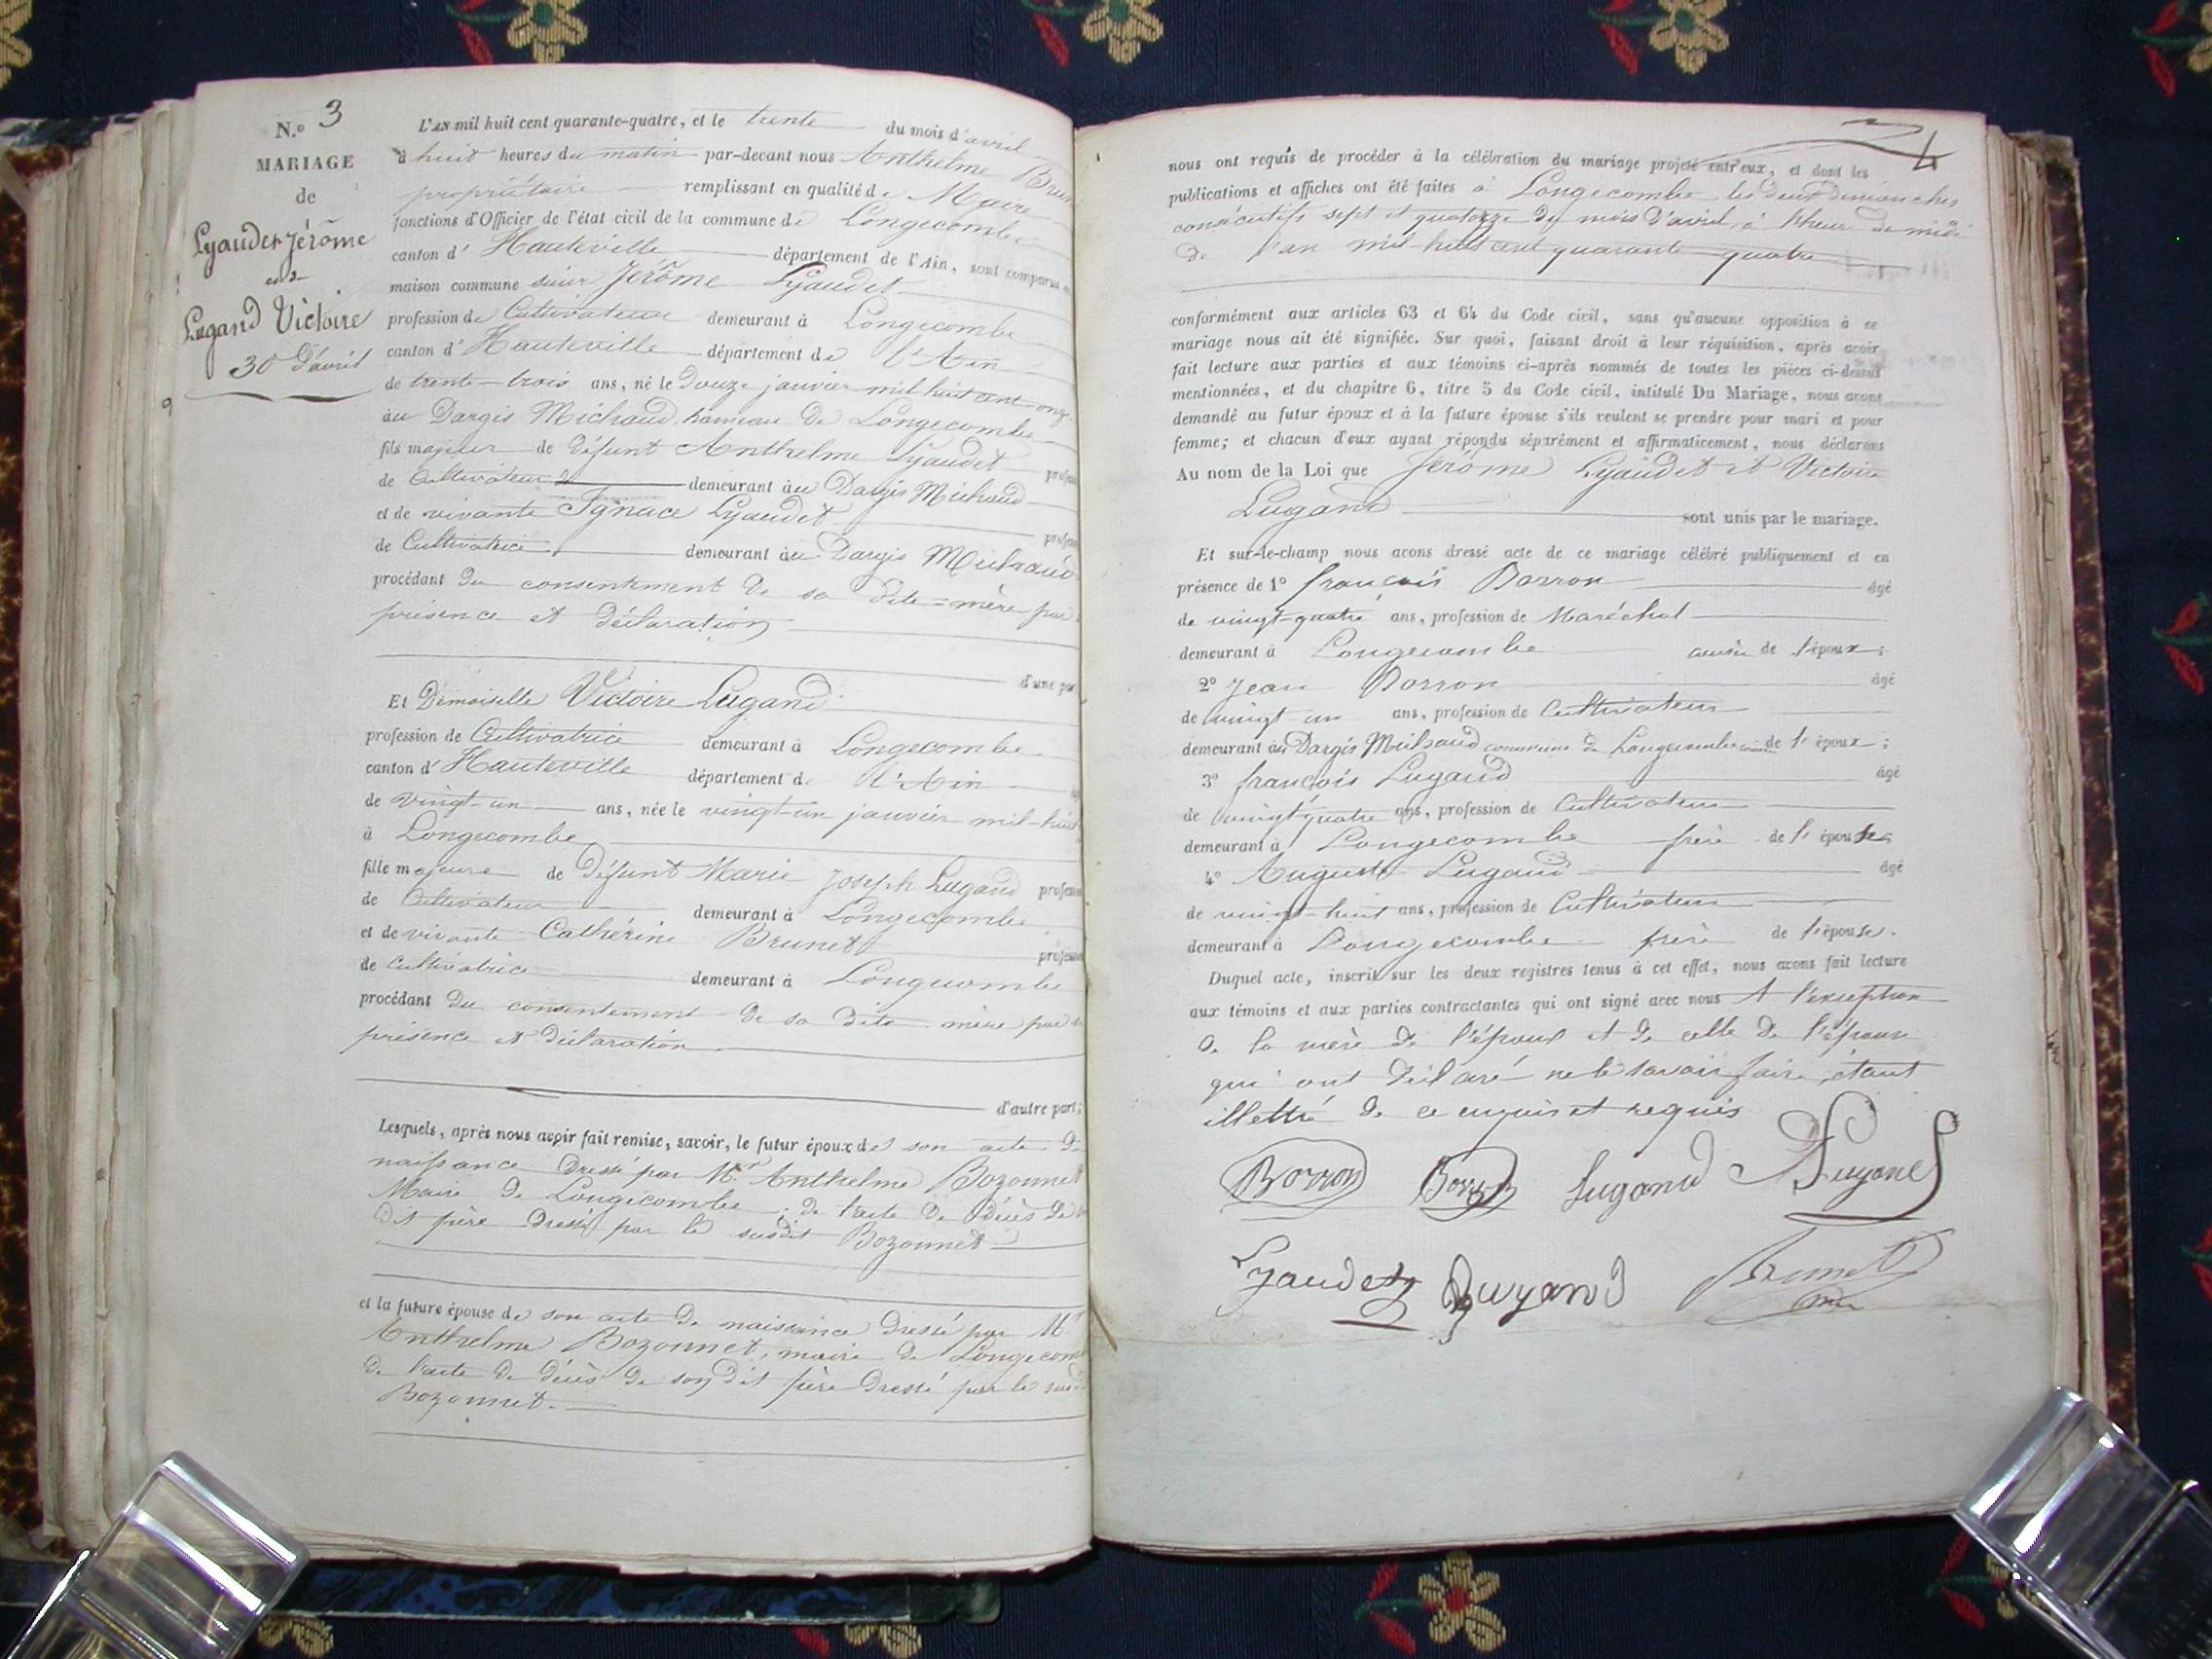 N.º 3
MARIAGE
de
Lyaudet Jérôme
et
Lugand Victoire
30 d'avril
L'AN mil huit cent quarante-quatre, et le trente du mois d'avril
à huit heures du matin par-devant nous Anthelme Brun
propriétaire remplissant en qualité de Maire
fonctions d'Officier de l'état civil de la commune de Longecombe
canton d'Hauteville département de l'Ain, sont comparus
maison commune sieur Jérôme Lyaudet
profession de Cultivateur demeurant à Longecombe
canton d'Hauteville département de l'Ain
de trente-trois ans, né le douze janvier mil huit cent onze
au Dargis Michaud hameau de Longecombe
fils majeur de défunt Anthelme Lyaudet profess
de Cultivateur demeurant au Dargis Michaud
et de vivante Ignace Lyaudet profess
de Cultivatrice demeurant au Dargis Michaud
procédant du consentement de sa dite=mère par
présence et déclaration
d'une part
Et Demoiselle Victoire Lugand
profession de Cultivatrice demeurant à Longecombe
canton d'Hauteville département de l'Ain
de vingt-un ans, née le vingt-un janvier mil-huit
à Longecombe
fille majeure de défunt Marie Joseph Lugand profession
de Cultivateur demeurant à Longecombe
et de vivante Cathérine Brunet profession
de cultivatrice demeurant à Longecombe
procédant du consentement de sa dite mère par sa
présence et déclaration
d'autre part;
Lesquels, après nous avoir fait remise, savoir, le futur époux de son acte de
naissance dressé par Mr Anthelme Bozonnet
Maire de Longecombe; de l'acte de décès de
dit père dressé par le susdit Bozonnet
et la future épouse de son acte de naissance dressé par Mr
Anthelme Bozonnet, maire de Longecom
de l'acte de décès de son dit père dressé par le sus
Bozonnet.
4
nous ont requis de procéder à la célébration du mariage projeté entr'eux, et dont les
publications et affiches ont été faites à Longecombe les deux dimanches
consécutifs sept et quatorze du mois d'avril, à l'heure de midi
de l'an mil huit cent quarante-quatre
conformément aux articles 63 et 64 du Code civil, sans qu'aucune opposition à ce
mariage nous ait été signifiée. Sur quoi, faisant droit à leur réquisition, après avoir
fait lecture aux parties et aux témoins ci-après nommés de toutes les pièces ci-dessus
mentionnées, et du chapitre 6, titre 5 du Code civil, intitulé Du Mariage, nous avons
demandé au futur époux et à la future épouse s'ils veulent se prendre pour mari et pour
femme; et chacun d'eux ayant répondu séparément et affirmativement, nous déclarons
Au nom de la Loi que Jérôme Lyaudet et Victoire
Lugand sont unis par le mariage.
Et sur-le-champ nous avons dressé acte de ce mariage célébré publiquement et en
présence de 1º françois Borron âgé
de vingt-quatre ans, profession de Maréchal
demeurant à Longecombe cousin de l'époux;
2º Jean Borron âgé
de vingt un ans, profession de Cultivateur
demeurant au Dargis Michaud commune de Longecombe cousin de l'époux;
3º françois Lugand âgé
de vingt-quatre ans, profession de Cultivateur
demeurant à Longecombe frère de l'épouse;
4º Auguste Lugand âgé
de vingt-huit ans, profession de Cultivateur
demeurant à Longecombe frère de l'épouse.
Duquel acte, inscrit sur les deux registres tenus à cet effet, nous avons fait lecture
aux témoins et aux parties contractantes qui ont signé avec nous A l'exception
de la mère de l'époux et de celle de l'épouse
qui ont déclaré ne le savoir faire, étant
illettré de ce enquis et requis
Borron Borron Lugand Lugand
Lyaudet Lugand Brunet